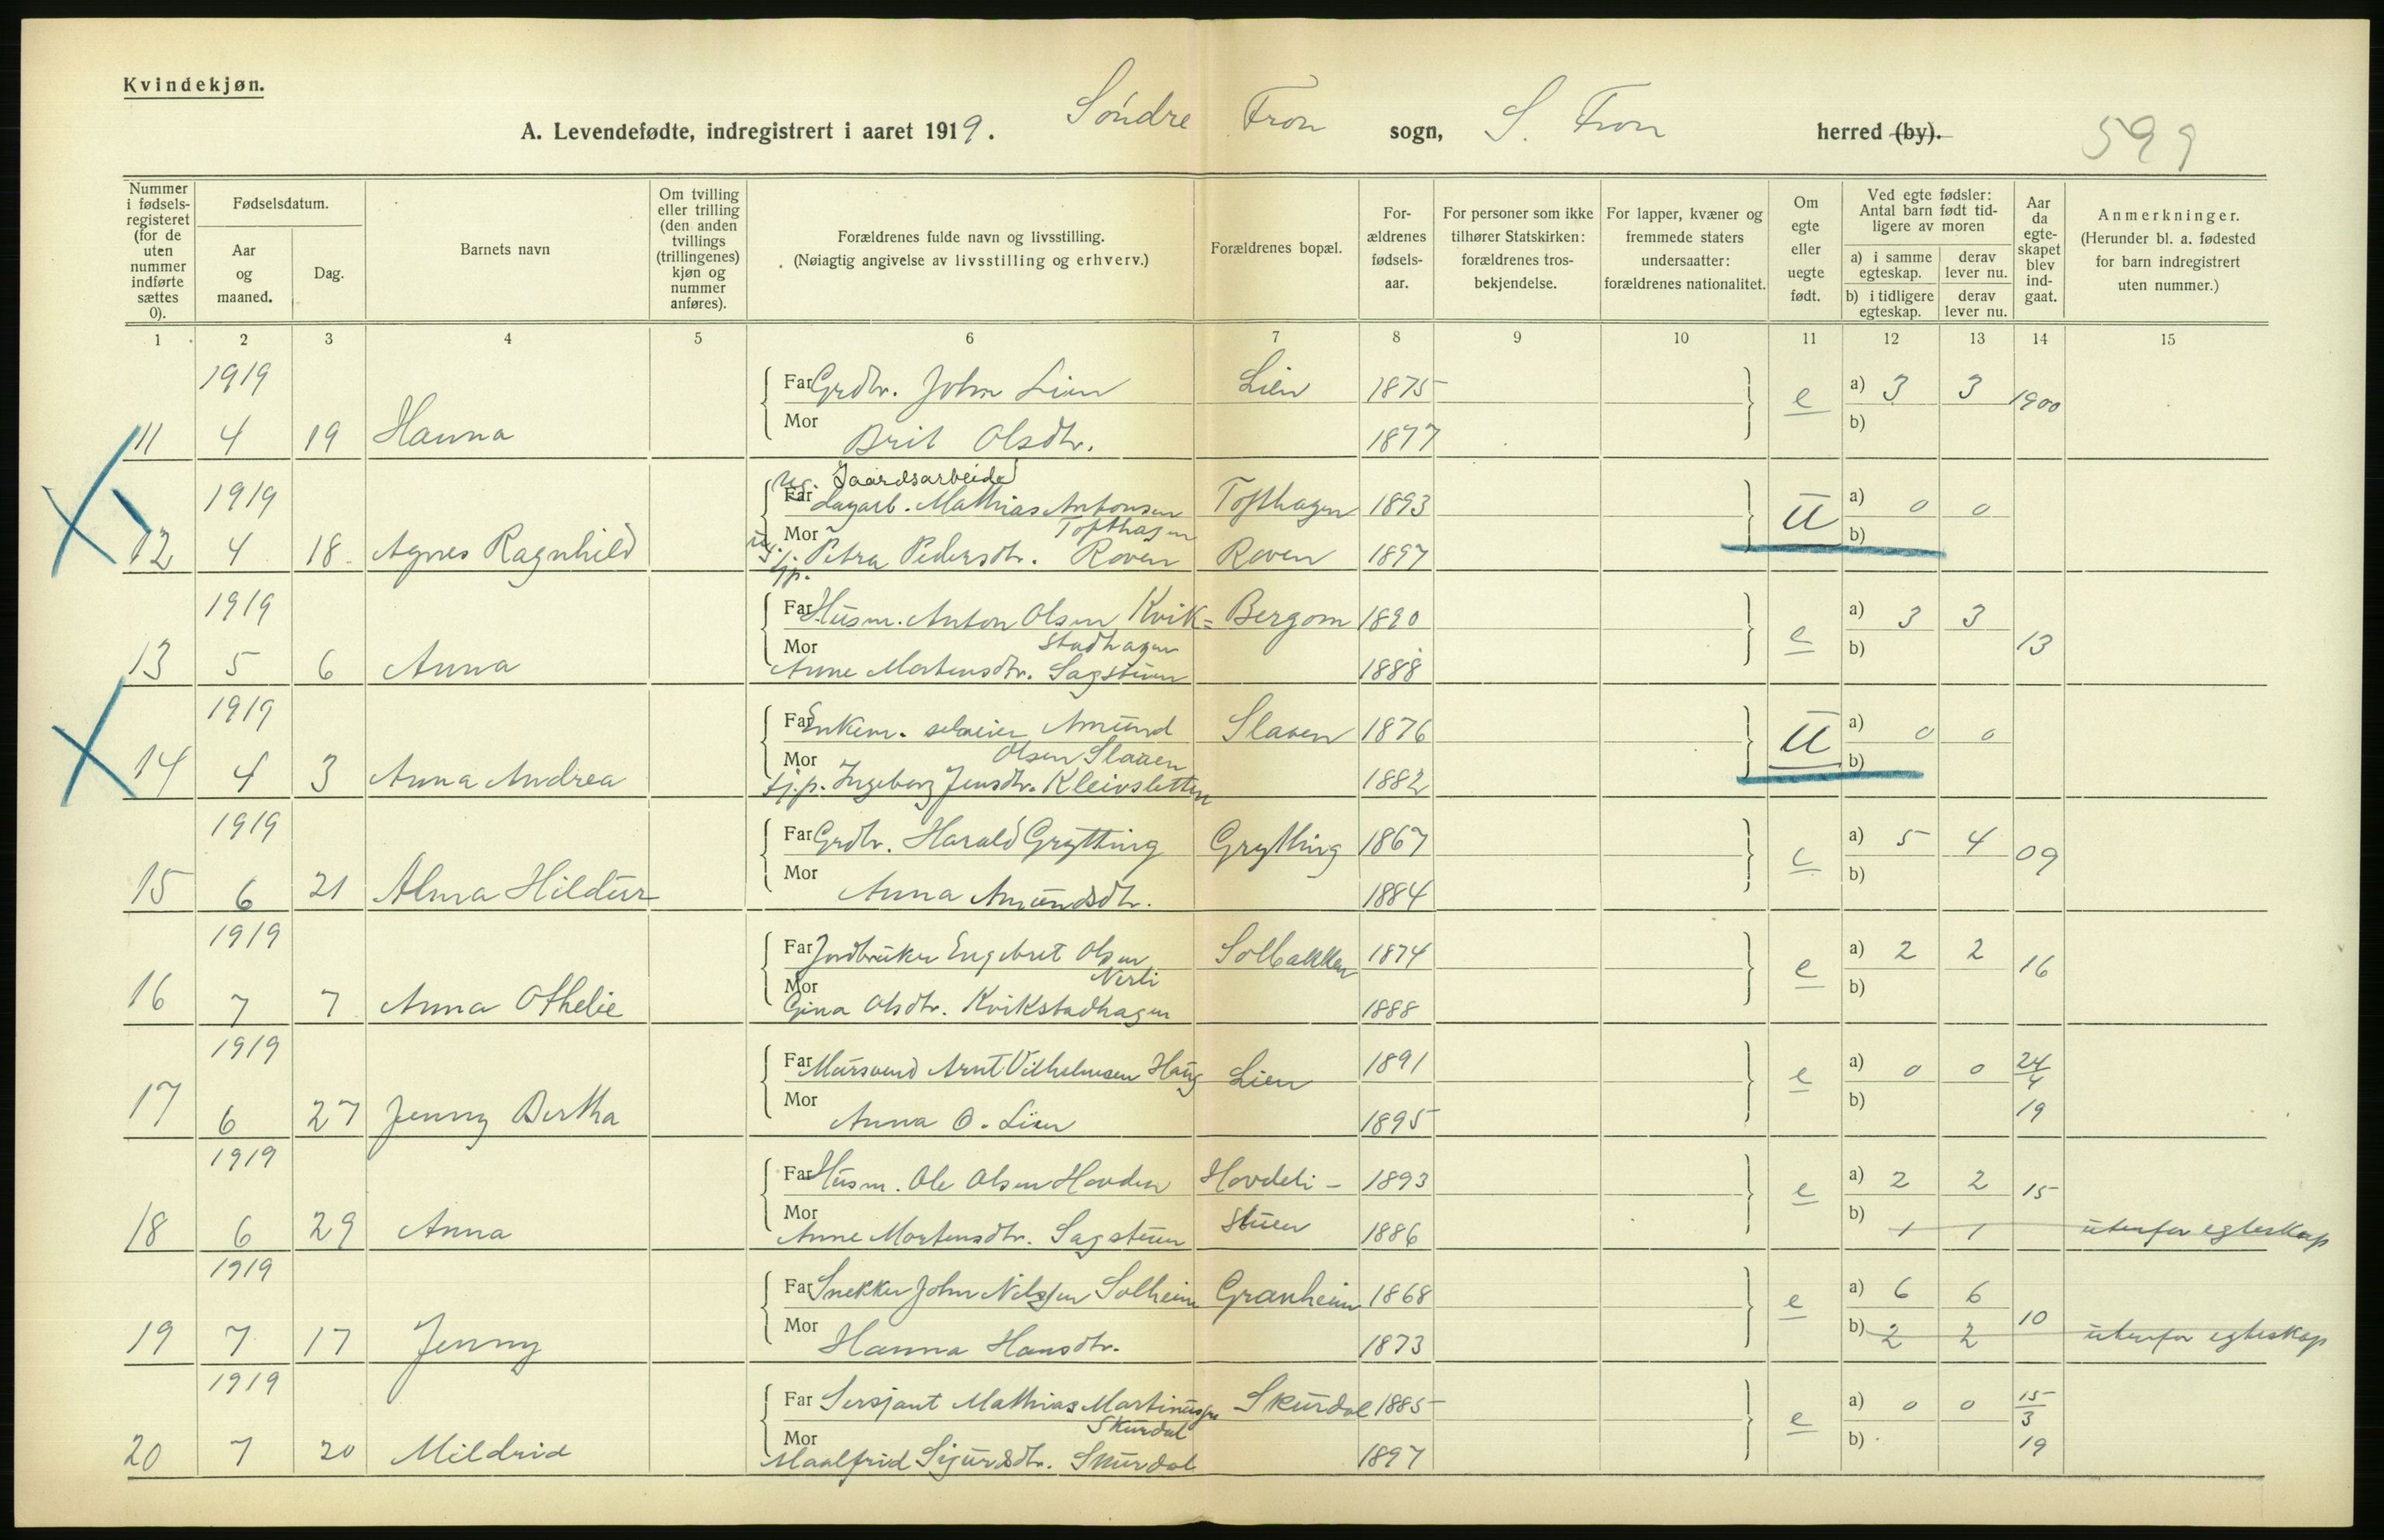 Kvindekjøn.
A. Levendefødte, indregistrert i aaret 1919. Søndre Fron sogn, S. Fron herred (by). 599
Nummer i fødselsregisteret (for de uten nummer indførte sættes 0).
Fødselsdatum.
Aar og maaned.
Dag.
Barnets navn
Om tvilling eller trilling (den anden tvillings (trillingenes) kjøn og nummer anføres).
Forældrenes fulde navn og livsstilling.
(Nøiagtig angivelse av livsstilling og erhverv.)
Forældrenes bopæl.
Forældrenes fødselsaar.
For personer som ikke tilhører Statskirken: forældrenes trosbekjendelse.
For lapper, kvæner og fremmede staters undersaatter: forældrenes nationalitet.
Om egte eller uegte født.
Ved egte fødsler: Antal barn født tidligere av moren
a) i samme egteskap. derav lever nu.
b) i tidligere egteskap. derav lever nu.
Aar da egteskapet blev indgaat.
Anmerkninger.
(Herunder bl. a. fødested for barn indregistrert uten nummer.)
1 2 3 4 5 6 7 8 9 10 11 12 13 14 15
1919 Far Grdbr. John Lien Lien 1875 e a) 3 3 1900
11 4 19 Hanna Mor Brit Olsdtr. 1877 b)
ug. Gaardsarbeider
1919 Far Dagarb. Mathias Antonsen Tofthagen Tofthagen 1893 U a) 0 0
12 4 18 Agnes Ragnhild Mor ug. tj.p. Petra Pedersdtr. Roven Roven 1897 b)
1919 Far Husm. Anton Olsen Kvik=stadhagen Bergom 1890 e a) 3 3 13
13 5 6 Anna Mor Anne Mortensdtr. Sagstuen 1888 b)
1919 Far Enkem. selveier Amund Olsen Slaaen Slaaen 1876 U a) 0 0
14 4 3 Anna Andrea Mor tj.p. Ingeborg Jensdtr. Kleivsletten 1882 b)
1919 Far Grdbr. Harald Grytting Grytting 1867 e a) 5 4 09
15 6 21 Alma Hildur Mor Anna Amundsdtr. 1884 b)
1919 Far Jordbruker Engebret Olsen Nerli Solbakken 1874 e a) 2 2 16
16 7 7 Anna Othelie Mor Gina Olsdtr. Kvikstadhagen 1888 b)
1919 Far Mursvend Arnt Vilhelmsen Haug Lien 1891 e a) 0 0 24/4 19
17 6 27 Jenny Bertha Mor Anna O. Lien 1895 b)
1919 Far Husm. Ole Olsen Hovden Hovdeli-stuen 1893 e a) 2 2 15
18 6 29 Anna Mor Anne Mortensdtr. Sagstuen 1886 b) 1 1 utenfor egteskap
1919 Far Snekker John Nilssen Solheim Granheim 1868 e a) 6 6 10
19 7 17 Jenny Mor Hanna Hansdtr. 1873 b) 2 2 utenfor egteskap
1919 Far Sersjant Mathias Martinussen Skurdal Skurdal 1885 e a) 0 0 15/3 19
20 7 20 Mildrid Mor Maalfrid Sigurdsdtr. Skurdal 1897 b)